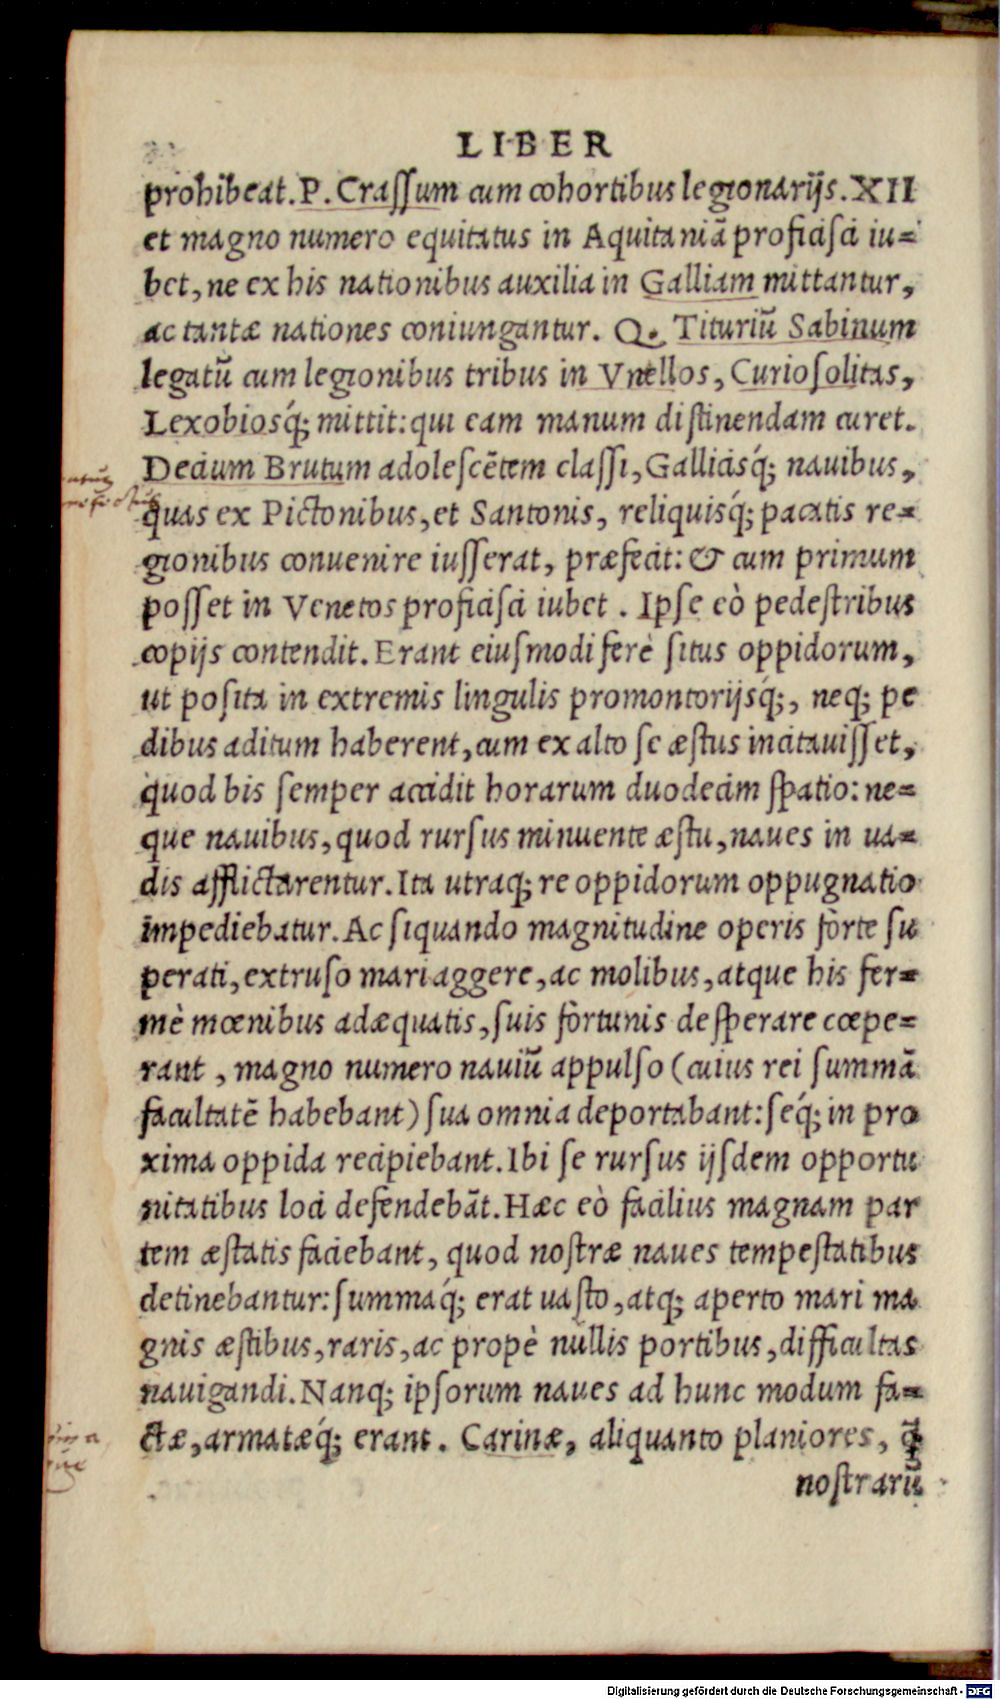 LIBER
prohibeat. P. Crassum cum cohortibus legionarijs. XII
et magno numero equitatus in Aquitaniā proficisci iu-
bet, ne ex his nationibus auxilia in Galliam mittantur,
ac tantæ nationes coniungantur. Q. Tituriū Sabinum
legatū cum legionibus tribus in Vnellos, Curiosolitas,
Lexobiosq́; mittit: qui eam manum distinendam curet.
Decium Brutum adolescētem classi, Gallicisq́; nauibus,
quas ex Pictonibus, et Santonis, reliquisq́; pacatis re-
gionibus conuenire iusserat, præfecit: & cum primum
posset in Venetos proficisci iubet. Ipse eò pedestribus
copijs contendit. Erant eiusmodi ferè situs oppidorum,
ut posita in extremis lingulis promontorijsq́;, neq; pe
dibus aditum haberent, cum ex alto se æstus incitauisset,
quod bis semper accidit horarum duodecim spatio: ne-
que nauibus, quod rursus minuente æstu, naues in ua-
dis afflictarentur. Ita utraq; re oppidorum oppugnatio
impediebatur. Ac siquando magnitudine operis forte su
perati, extruso mari aggere, ac molibus, atque his fer-
mè mœnibus adæquatis, suis fortunis desperare cœpe-
rant, magno numero nauiū appulso (cuius rei summā
facultatē habebant) sua omnia deportabant: seq́; in pro
xima oppida recipiebant. Ibi se rursus ijsdem opportu
nitatibus loci defendebāt. Hæc eò facilius magnam par
tem æstatis faciebant, quod nostræ naues tempestatibus
detinebantur: summaq́; erat uasto, atq; aperto mari ma
gnis æstibus, raris, ac propè nullis portibus, difficultas
nauigandi. Nanq; ipsorum naues ad hunc modum fa-
ctæ, armatæq́; erant. Carinæ, aliquanto planiores, q̄
nostrarū
Digitalisierung gefördert durch die Deutsche Forschungsgemeinschaft - DFG